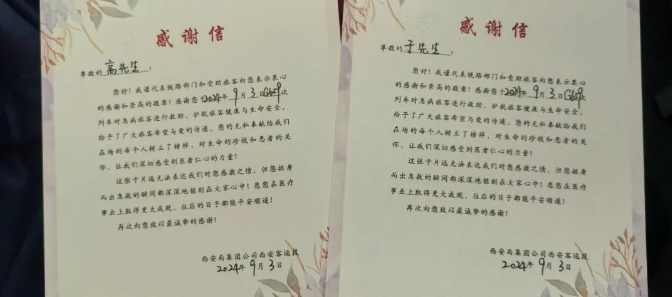 感谢信
尊敬的高先生：
您好！我谨代表铁路部门和受助旅客向您表示衷心
的感谢和崇高的敬意！感谢您于2024年9月3日G649次
列车对患病旅客进行救助，护航旅客健康与生命安全，
给予了广大旅客希望与爱的传递。您的无私奉献给我们
在场的每个人树立了榜样，对生命的珍视和患者的关
怀，让我们深切感受到医者仁心的力量！
这张卡片远无法表达我们对您感激之情，但您挺身
而出急救的瞬间都深深地铭刻在大家心中！愿您在医疗
事业上取得更大成就，往后的日子都能平安顺遂！
再次向您致以最诚挚的感谢！
西安局集团公司西安客运段
2024年9月3日
感谢信
尊敬的于先生：
您好！我谨代表铁路部门和受助旅客向您表示衷心
的感谢和崇高的敬意！感谢您于2024年9月3日G649次
列车对患病旅客进行救助，护航旅客健康与生命安全，
给予了广大旅客希望与爱的传递。您的无私奉献给我们
在场的每个人树立了榜样，对生命的珍视和患者的关
怀，让我们深切感受到医者仁心的力量！
这张卡片远无法表达我们对您感激之情，但您挺身
而出急救的瞬间都深深地铭刻在大家心中！愿您在医疗
事业上取得更大成就，往后的日子都能平安顺遂！
再次向您致以最诚挚的感谢！
西安局集团公司西安客运段
2024年9月3日